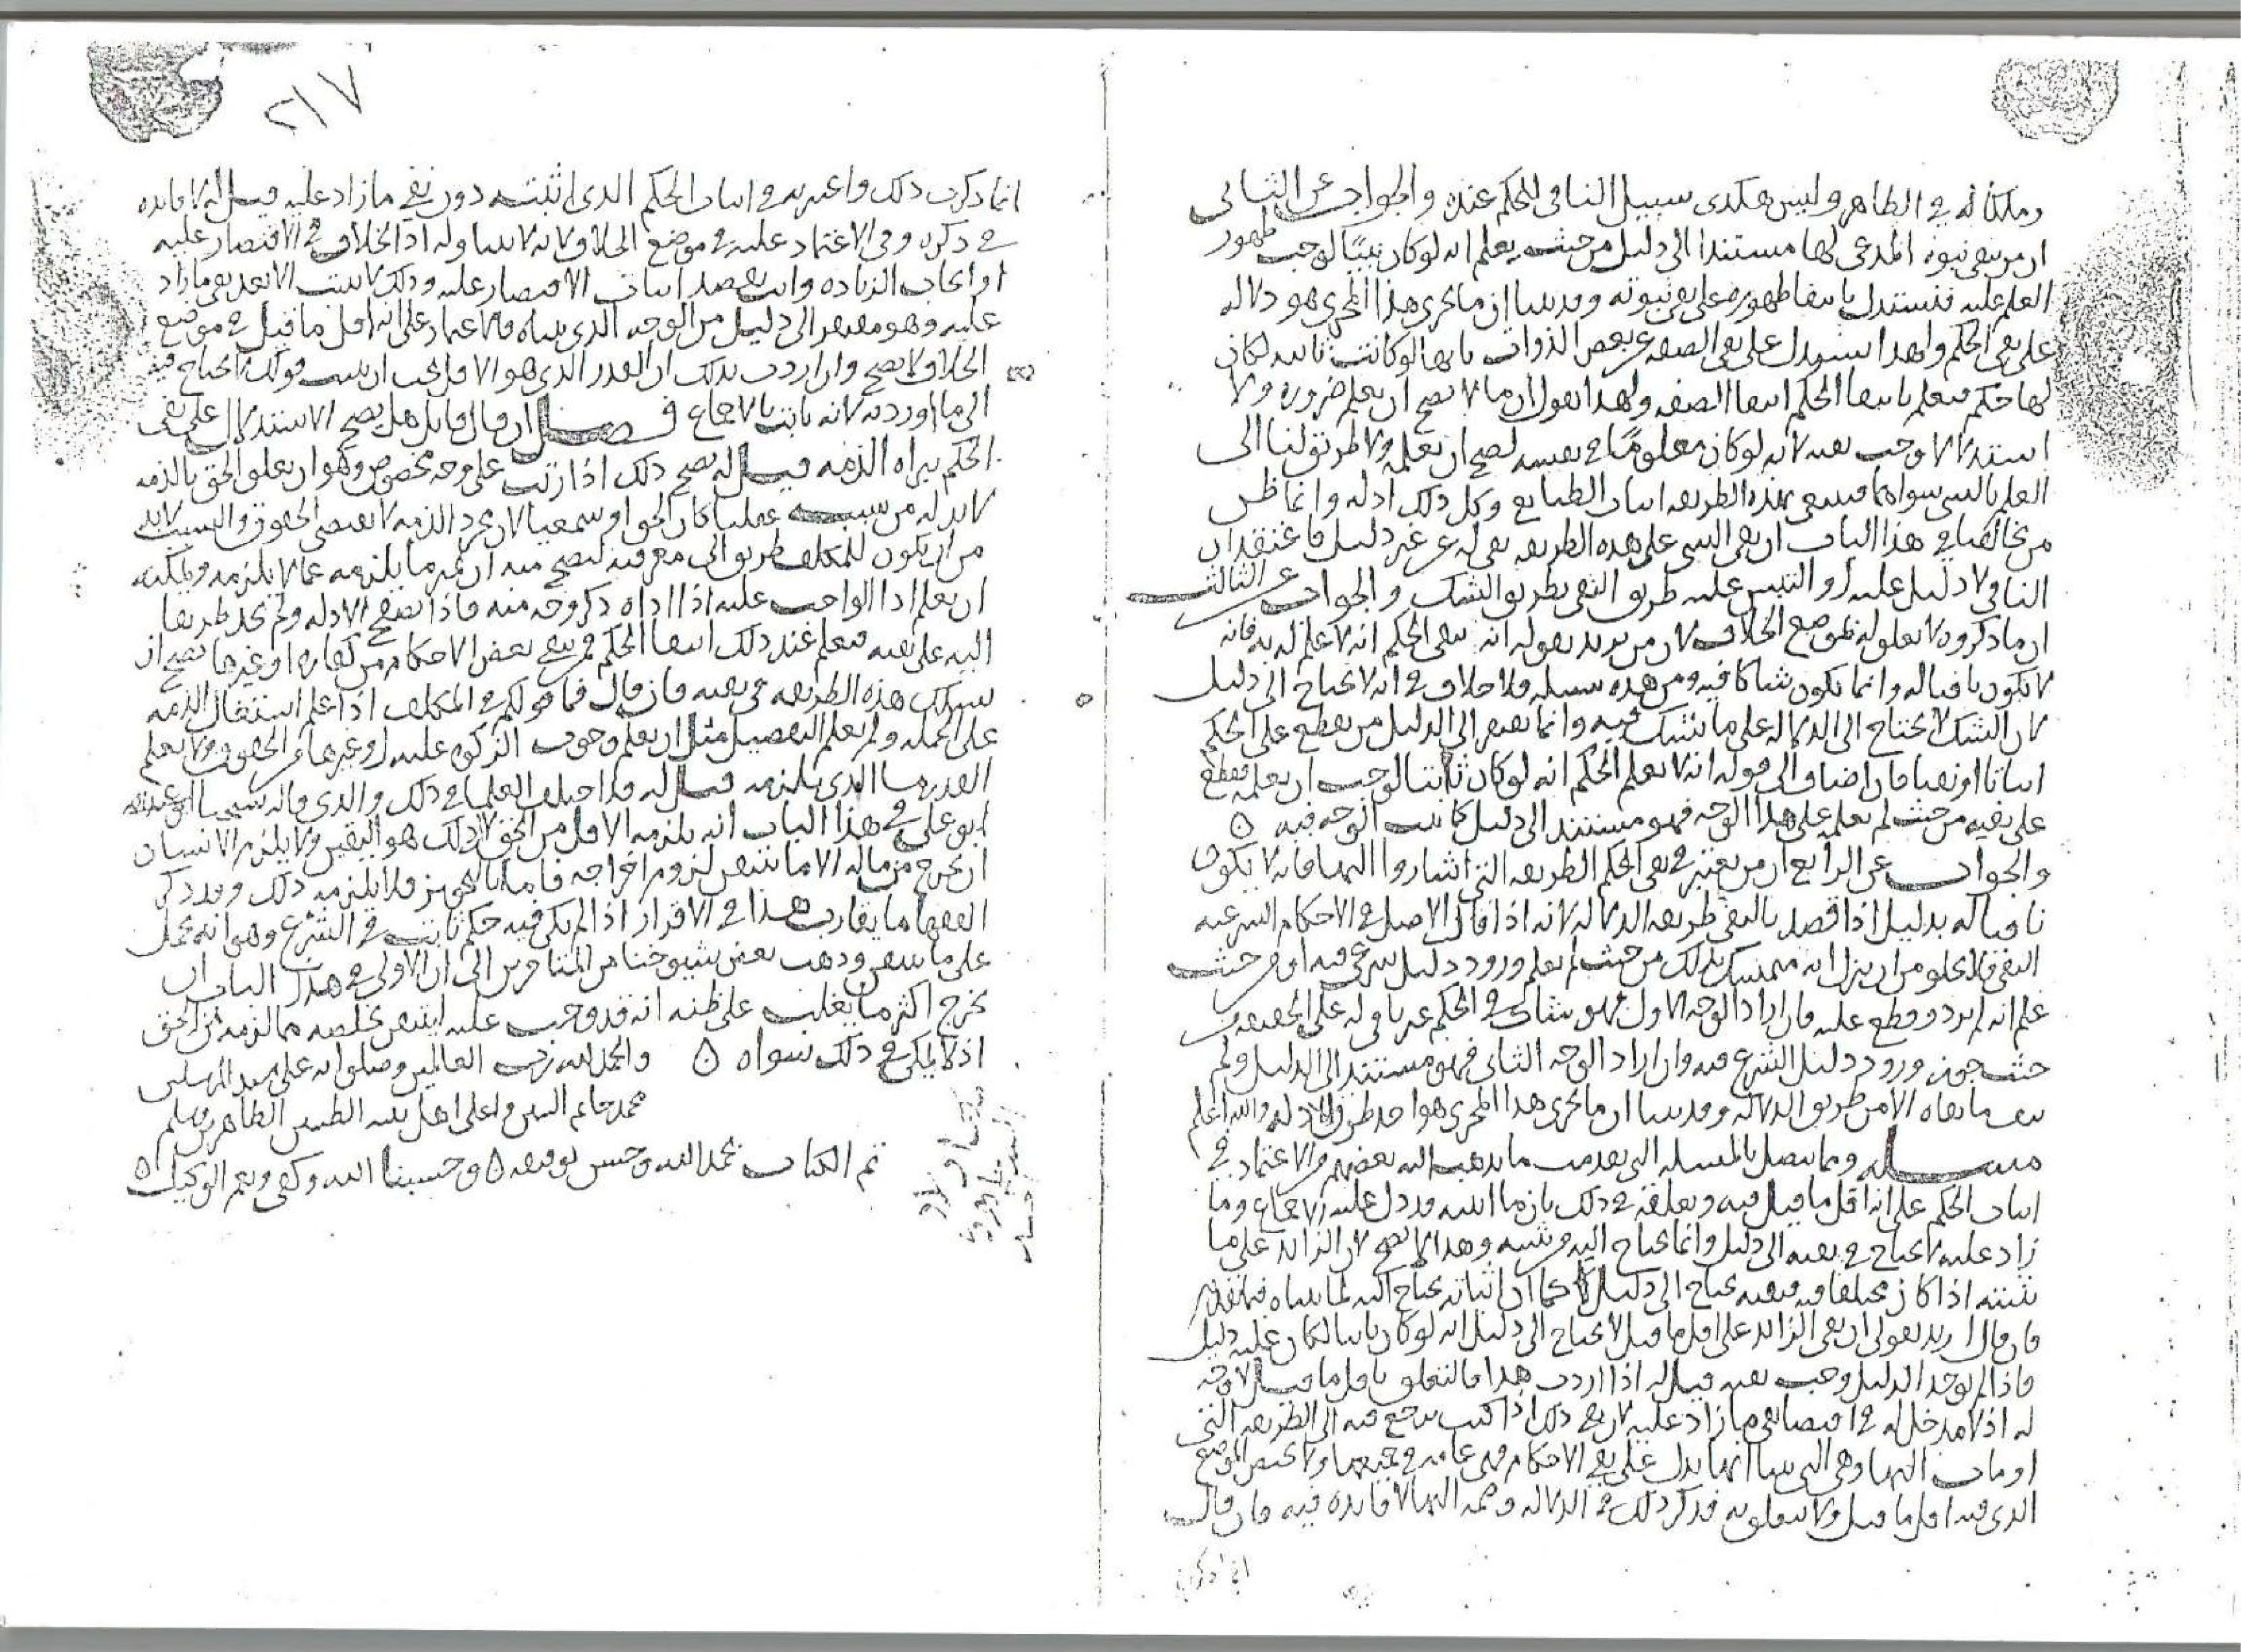 وملكا له في الظاهر وليس هكذى سبيل النافي للحكم عنده والجواب عن الثاني
ان من نفى نبوة المدعي لها مستندا الى دليل من حيث يعلم انه لو كان نبيًا لوجب ظهور
العلم عليه فنستدل بانتفا ظهوره على نفي نبوته وقد بينا ان ما يجري هذا المجرى هو دلاله
على نفي الحكم ولهذا نستدل على نفي الصفه عن بعض الذوات بانها لو كانت ثابته لكان
لها حكم فنعلم بانتفا الحكم انتفا الصفه ولهذا نقول ان ما لا يصح ان يعلم ضروره ولا
استدلالا وجب نفيه لانه لو كان معلومًا في نفسه لصح ان نعلمه ولا طريق لنا الى
العلم بالشي سواهما فننفي بهذه الطريقه اثبات الطبايع وكل ذلك ادله وانما ظن
من يخالفنا في هذا الباب ان نفي الشي على هذه الطريقه نفي له عن غير دليل فاعتقد ان
النافي لا دليل عليه او التبس عليه طريق النفي بطريق الشك والجواب عن الثالث
ان ما ذكروه لا تعلق له بموضع الخلاف لان من يريد بقوله انه نفى الحكم انه لا علم له به فانه
لا يكون نافيا له وانما يكون شاكا فيه ومن هذه سبيله فلا خلاف في انه لا يحتاج الى دليل
لان الشك لا يحتاج الى الدلاله على ما نشك فيه وانما يفتقر الى الدليل من يقطع على الحكم
اثباتا او نفيا فان اضاف الى قوله انه لا يعلم الحكم انه لو كان ثابتا لوجب ان يعلمه فقطع
على نفيه من حيث لم يعلمه على هذا الوجه فهو مستند الى دليل كما بينت الوجه فيه ه
والجواب عن الرابع ان من يعتبر في نفي الحكم الطريقه التي اشاروا اليها فانه لا يكون
نافيا له بدليل اذا قصد بالنفي طريقه الدلاله لانه اذا قال الاصل في الاحكام الشرعيه
النفي فلا يخلو من ان يريد انه متمسك بذلك من حيث لم يعلم ورود دليل شرعي فيه او من حيث
علم انه لم يرد وقطع عليه فان اراد الوجه الاول فهو شاك في الحكم غير ناف له على الحقيقه من
حيث جوز ورود دليل الشرع فيه وان اراد الوجه الثاني فهو مستند الى الدليل ولم
ينف ما نفاه الا من طريق الدلاله وقد بينا ان ما يجري هذا المجرى هو احد طرق الادله والله اعلم
مسله ومما يتصل بالمسله التي تقدمت ما يذهب اليه بعضهم والاعتماد في
اثبات الحكم على انه اقل ما قيل فيه وتعلقه في ذلك بان ما اثبته قد دل عليه الاجماع وما
زاد عليه لا يحتاج في نفيه الى دليل وانما يحتاج اليه من يثبته وهذا لا يصح لان الزائد على ما
يثبته اذا كان مختلفا فيه فنفيه يحتاج الى دليل كما ان اثباته يحتاج اليه لما بيناه فيما تقدم
فان قال اريد بقولي ان نفي الزائد على اقل ما قيل لا يحتاج الى دليل انه لو كان ثابتا لكان عليه دليل
فاذا لم يوجد الدليل وجب نفيه قيل له اذا اردت هذا فالتعلق باقل ما قيل لا وجه
له اذ لا مدخل له في اقتضا نفي ما زاد عليه لان في ذلك اذا كنت ترجع فيه الى الطريقه التي
اومات اليها وهي التي بينا انها تدل على نفي الاحكام فهي عامه في جميعها ولا تختص الموضع
الذي فيه اقل ما قيل ولا تتعلق به فذكر ذلك في الدلاله وضمه اليها لا فايده فيه فان قال
انما ذكرت
٢١٧
انما ذكرت ذلك واعتبرته في اثبات الحكم الذي اثبته دون نفي ما زاد عليه قيل له لا فايده
في ذكره وفي الاعتماد عليه في موضع الخلاف لانه لا يتناوله اذ الخلاف في الاقتصار عليه
او ايجاب الزياده وانت تقصد اثبات الاقتصار عليه وذلك لا يثبت الا بعد نفي ما زاد
عليه وهو مفتقر الى دليل من الوجه الذي بيناه فالاعتماد على انه اقل ما قيل في موضع
الخلاف لا يصح وان اردت بذلك ان القدر الذي هو الاقل يجب ان يثبت فذلك لا يحتاج فيه
الى ما اوردته لانه ثابت بالاجماع فصل ان قال قايل هل يصح الاستدلال على نفي
الحكم ببراه الذمه قيل له يصح ذلك اذا رتب على وجه مخصوص وهو ان تعلق الحق بالذمه
لا بد له من سبب عقليا كان الحق او سمعيا لان مجرد الذمه لا يقتضي الحقوق والسبب لا بد
من ان يكون للمكلف طريق الى معرفته ليصح منه ان يميز ما يلزمه مما لا يلزمه ويمكنه
ان يعلم ادا الواجب عليه اذا اداه ذكر وجه منه فاذا تصفح الادله ولم يجد طريقا
اليه على نفيه فيعلم عند ذلك انتفا الحكم ففي نفي بعض الاحكام من كفاره او غيرها يصح ان
نسلك هذه الطريقه في نفيه فان قال فما قولكم في المكلف اذا علم اشتغال الذمه
على الجمله ولم يعلم التفصيل مثل ان يعلم وجوب الزكوه عليه او غيرها من الحقوق ولا يعلم
القدر منها الذي يلزمه قيل له قد اختلف العلما في ذلك والذي قاله شيخنا
ابو علي في هذا الباب انه يلزمه الاقل من الحق لان ذلك هو اليقين ولا يلزم الانسان
ان يخرج من ماله الا ما تيقن لزوم اخراجه فاما بالتجويز فلا يلزمه ذلك وقد ذكر
الفقها ما يقارب هذا في الاقرار اذا لم يكن فيه حكم ثابت في الشرع وهو انه يحمل
على ما تيقن وذهب بعض شيوخنا من المتاخرين الى ان الاولى في هذا الباب ان
يخرج اكثر ما يغلب على ظنه انه قد وجب عليه ليتيقن تخلصه مما لزمه من الحق
اذ لا يمكن في ذلك سواه ه والحمد لله رب العالمين وصلواته على سيد المرسلين
محمد خاتم النبيين وعلى اهل بيته الطيبين الطاهرين وسلم
تم الكتاب بحمد الله وحسن توفيقه ه وحسبنا الله وكفى ونعم الوكيل ه